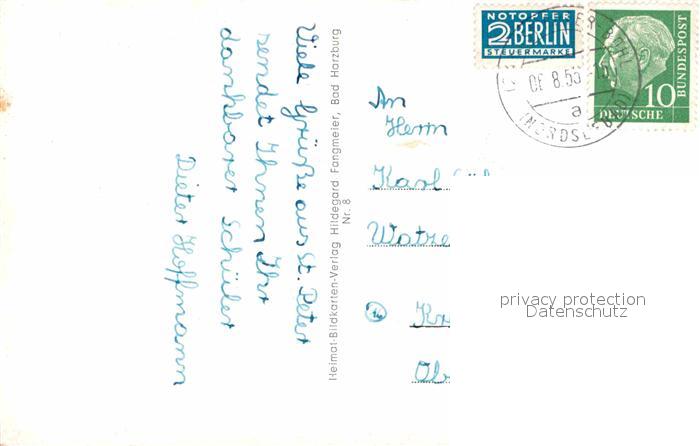 Viele Grüße aus St. Peter
sendet Ihnen Ihr
dankbarer Schüler
Dieter Hoffmann
Heimat-Bildkarten-Verlag Hildegard Fangmeier, Bad Harzburg
Nr. 8
NOTOPFER
2 BERLIN
STEUERMARKE
06.8.55
a
(NORDSEEBAD)
10
DEUTSCHE
BUNDESPOST
An
Herrn
Karl
Watze
Kr
Ob
privacy protection
Datenschutz